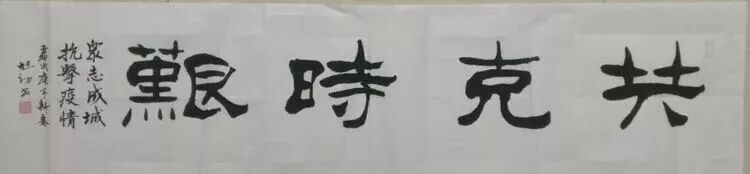 共克時艱
眾志成城
抗擊疫情
歲次庚子新春